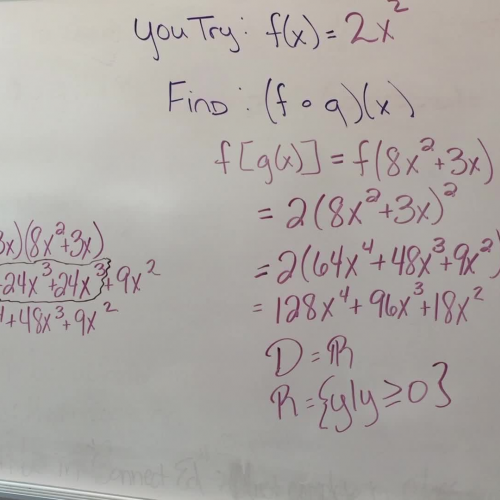 You Try: f(x) = 2x²
Find: (f ∘ g)(x)
f[g(x)] = f(8x²+3x)
= 2(8x²+3x)²
= 2(64x⁴+48x³+9x²)
= 128x⁴+96x³+18x²
D = ℝ
R = {y|y ≥ 0}
3x)(8x²+3x)
24x³+24x³+9x²
+48x³+9x²